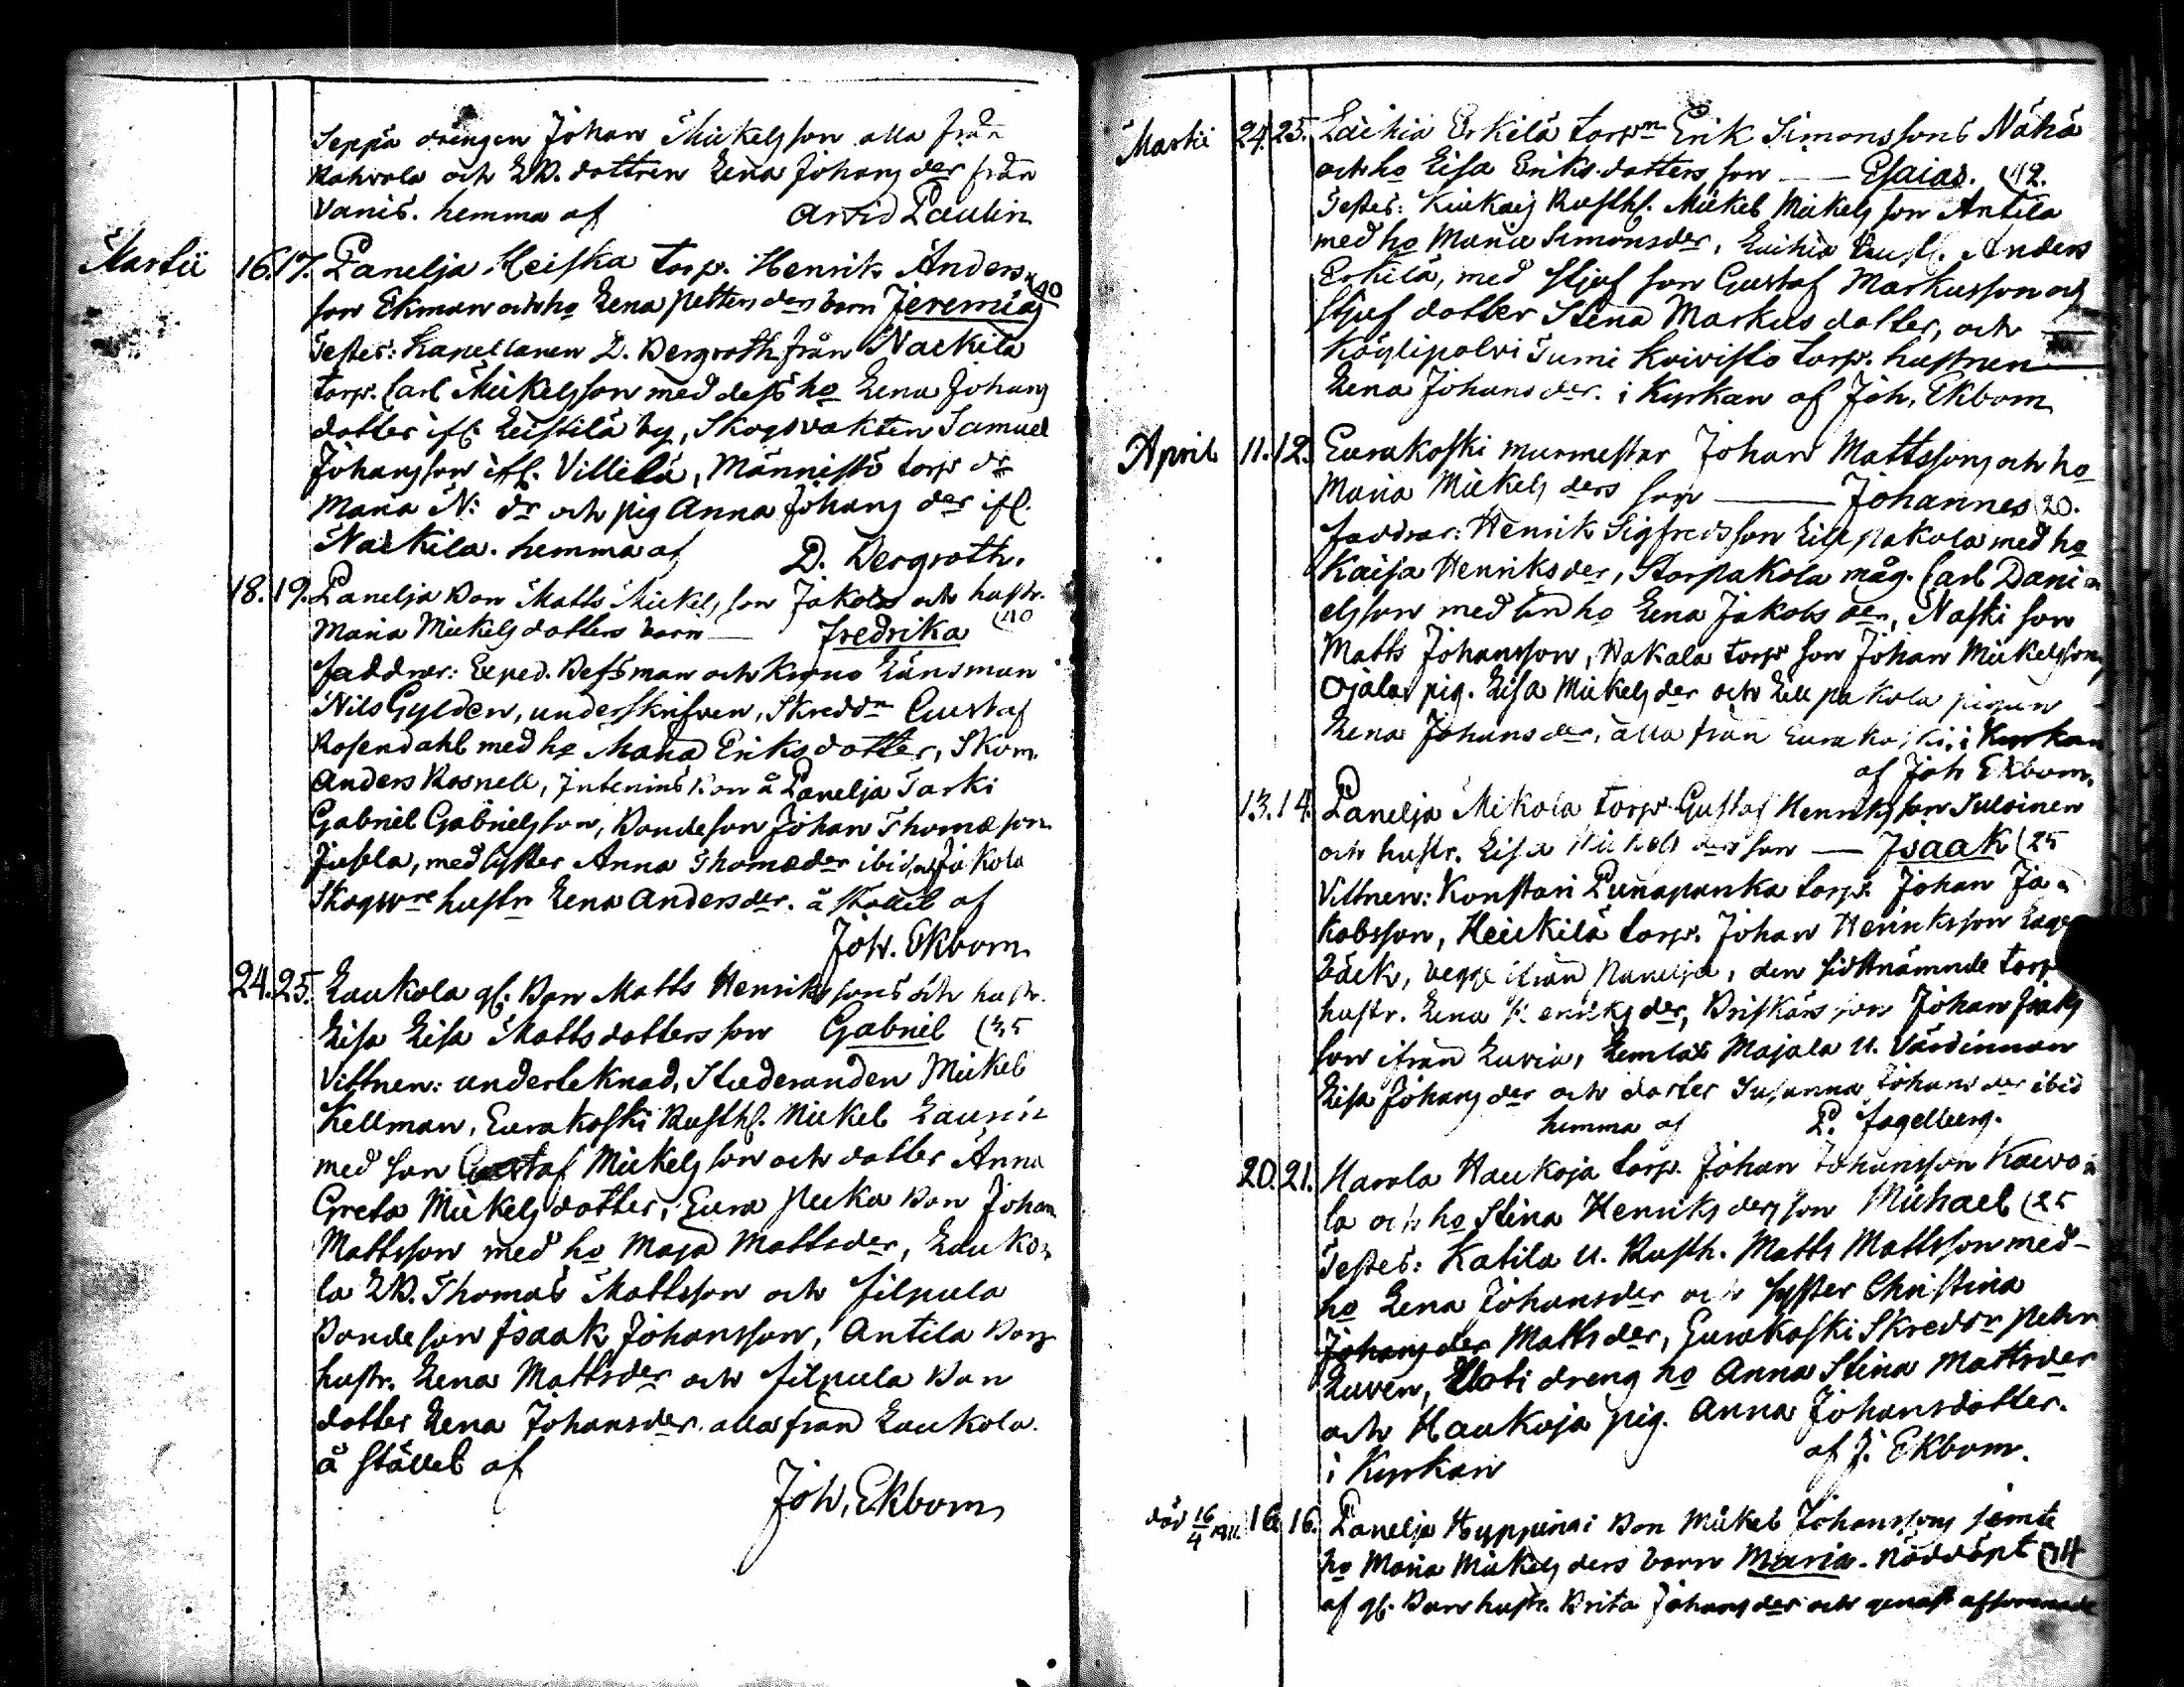 Seppä drengen Johan Mickelsson alla från
Kahvola och LB. dottren Lena Johans der från
Vanis. hemma af Arvid Paulin
Martii 16. 17. Panelja Heiska torp. Henrik Anders-
son Ekman och ho Lena Petters der barn Jeremias (40
Testes: Kapellanen D. Bergroth från Naekila
torp. Carl Mickelsson med dess ho Lena Johans
dotter ifr. Leistilä by, Skogsvakten Samuel
Johansson ifr. Villilä, Männistö torp dr
Maria N: dr och pig Anna Johans der ifr.
Naekila. hemma af D. Bergroth.
18. 19. Panelja Bon Matts Mickelsson Jakola och hustr.
Maria Mickelsdotters barn — Fredrika (40
faddrar: Exped. Befsman och Krono Länsman
Nils Gylden, underskrifven, Skreddn Gustaf
Rosendahl med ho Maria Eriksdotter, Skom.
Anders Rosnell, Bon å Panelja Tarki
Gabriel Gabrielsson, Bondeson Johan Thomæson
Jusela, med syster Anna Thomæder ibid, Jakola
Skogvre hustr Lena Andersder. å stället af
Joh. Ekbom
24. 25. Laukola gl. Bon Matts Henrikssons och hustr.
Lisa Lisa Mattsdotters son Gabriel (35
Vittnen: undertecknad, Studeranden Mickel
Kellman, Eurakoski Rusth. Mickel Laurin
med son Gustaf Mickelsson och dotter Anna
Greta Mickelsdotter, Eura Pucka Bon Johan
Mattsson med ho Maja Mattsder, Lauko-
la LB. Thomas Mattsson och Filpula
Bondeson Isaak Johansson, Antila Bon
hustr. Lena Mattsder och Filpula Bon
dotter Lena Johansder. alla från Laukola.
å stället af
Joh. Ekbom
Martii 24. 25. Laihia Erkilä torpn Erik Simonssons Nähä
och ho Lisa Eriksdotters son — Esaias. (42.
Testes: Kiukais Rusth. Mickel Mickelsson Antila
med ho Maria Simonsder, Laihia Anders
Erkilä, med stjuf son Gustaf Markusson och
stjuf dotter Stena Markusdotter, och
Köylipolvi Sumi Koivisto torp. hustrun
Lena Johansder. i Kyrkan af Joh. Ekbom
April 11. 12. Eurakoski murmestar Johan Mattssons och ho
Maria Mickels ders son — Johannes (20.
faddrar: Henrik Sigfredsson Lillpakola med ho
Kaisa Henriksder, Storpakola måg. Carl Dani-
elsson med ho Lena Jakobs der, Naski son
Matts Johansson, Wakala torp son Johan Mickelsson,
Ojala pig. Lisa Mickelsder och Lillpakola pigan
Lena Johansder, alla från Eurakoski. i Kyrkan
af Joh Ekbom.
13. 14. Panelja Mikola torp. Gustaf Henriksson Suloinen
och hustr. Lisa Michels ders son — Isaak (25
Vittnen: Konstari Punapanka torp. Johan Ja-
kobsson, Heickilä torp. Johan Henriksson Lager
bäck, begge ifrån Panelja, den sistnämnde torp
hustr. Lena Henriksder, Briskärs son Johan Isaks
son ifrån Luvia, Lemlax Majala U. Värdinnan
Lisa Johansder och dotter Susanna Johansder ibid
hemma af P. Fagelberg.
20. 21. Harola Haukoja torp. Johan Johansson Kaivo-
la och ho Stina Henriks ders son Michael (25
Testes: Katila U. Rusth. Matts Mattsson med-
ho Lena Johansder och syster Christina
Johans der Mattsder, Eurakoski Skreddr Pehr
Luren, dreng ho Anna Stina Mattsder
och Haukoja pig. Anna Johansdotter.
i Kyrkan af J. Ekbom.
död 16/4 1811. 16. 16. Panelja Hyppingi Bon Mickel Johanssons jemte
ho Maria Mickels ders barn Maria. Nöddöpt (24
af gl. Bon hustr. Brita Johansder och genast afsomnade